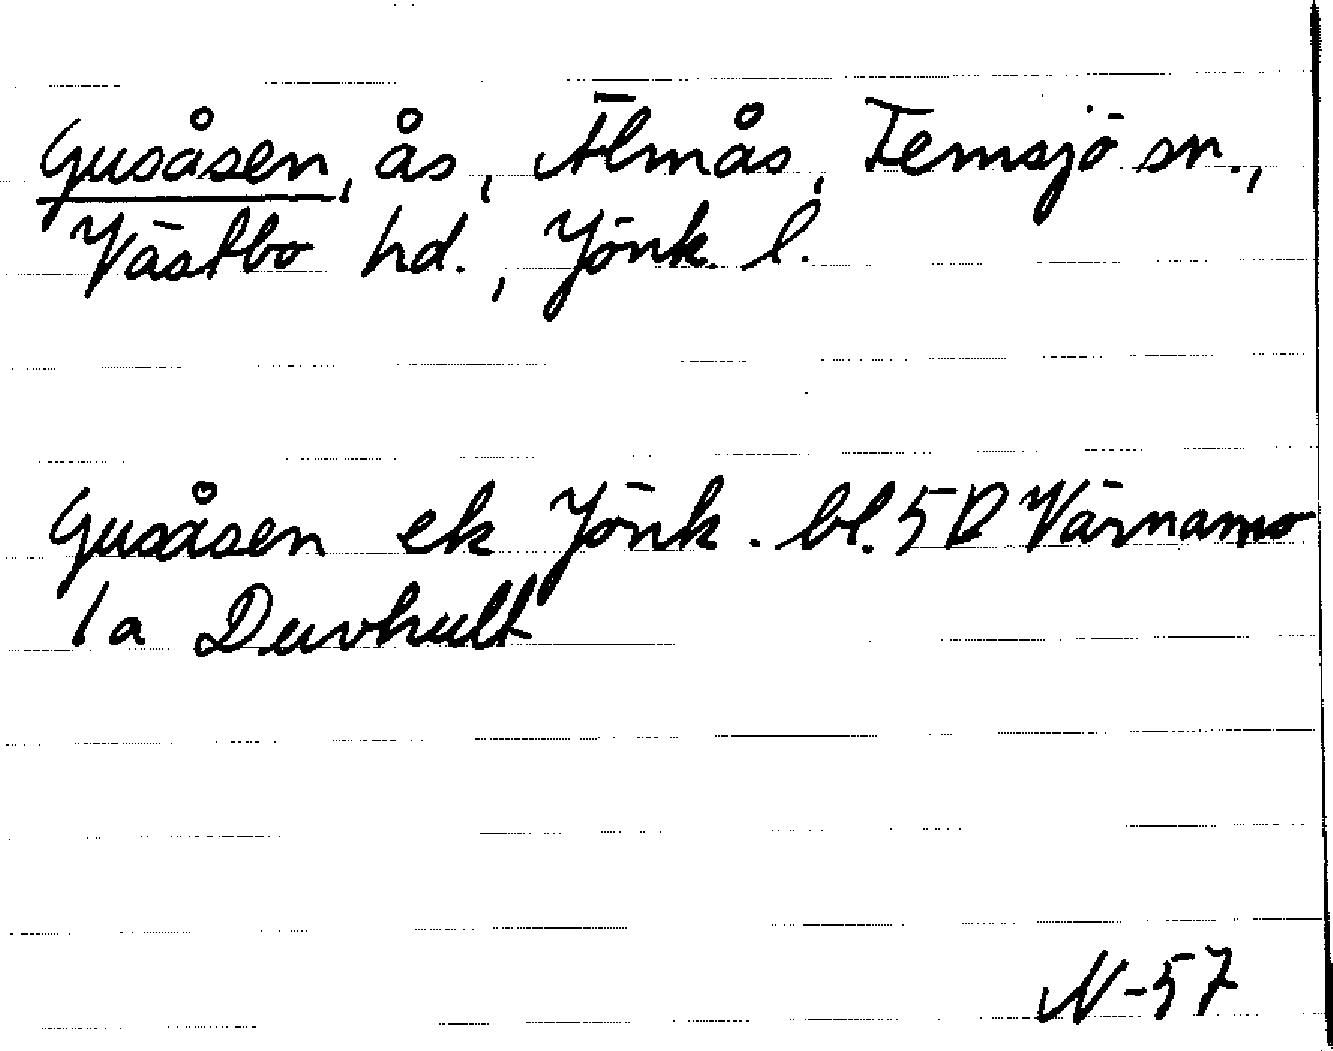 Gusåsen, ås, Älmås, Femsjö sn.,
Västbo hd., Jönk. l.
Gusåsen ek Jönk. bl. 5D Värnamo
1a Duvhult
N-57